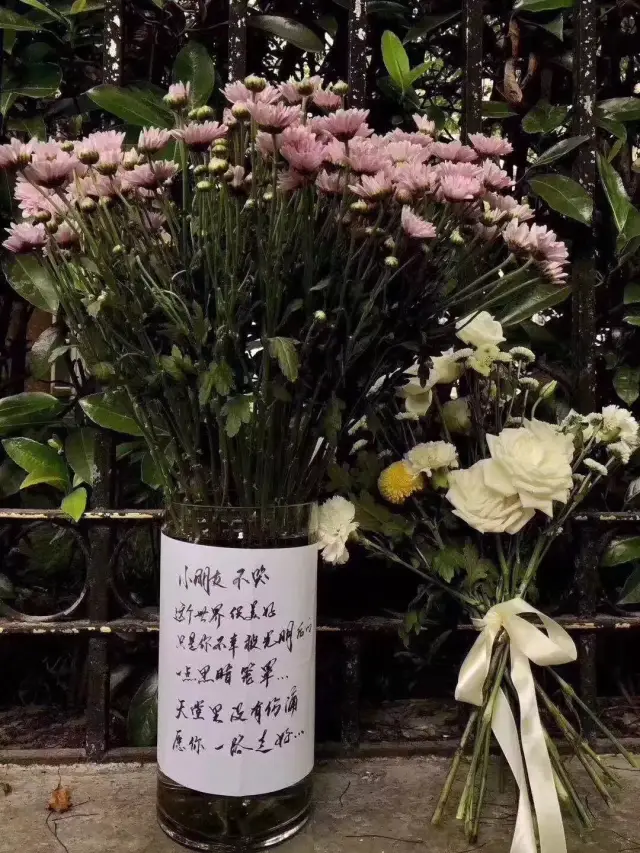 小朋友 不哭
这个世界 很美好
只是你不幸被光明后的
一点黑暗 笼罩...
天堂里没有伤痛
愿你 一路走好...